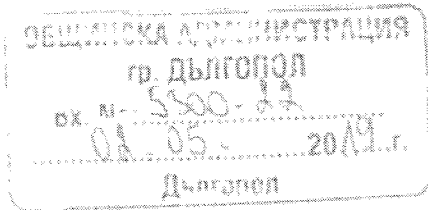 ОБЩИНСКА АДМИНИСТРАЦИЯ
гр. ДЪЛГОПОЛ
вх. № 5300-22
02.05. 2019 г.
Дългопол